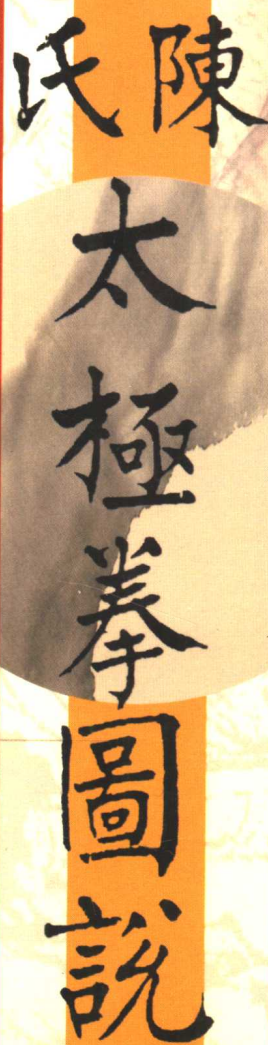 陳氏
太極拳圖說